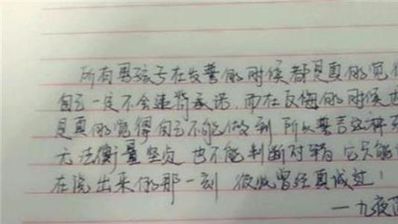 所有男孩子在发誓的时候都是真的觉
自己一定不会违背承诺,而在反悔的时候也
是真的觉得自己不能做到,所以誓言这种
无法衡量坚贞,也不能判断对错,它只能
在说出来的那一刻,彼此曾经真诚过!
—九夜